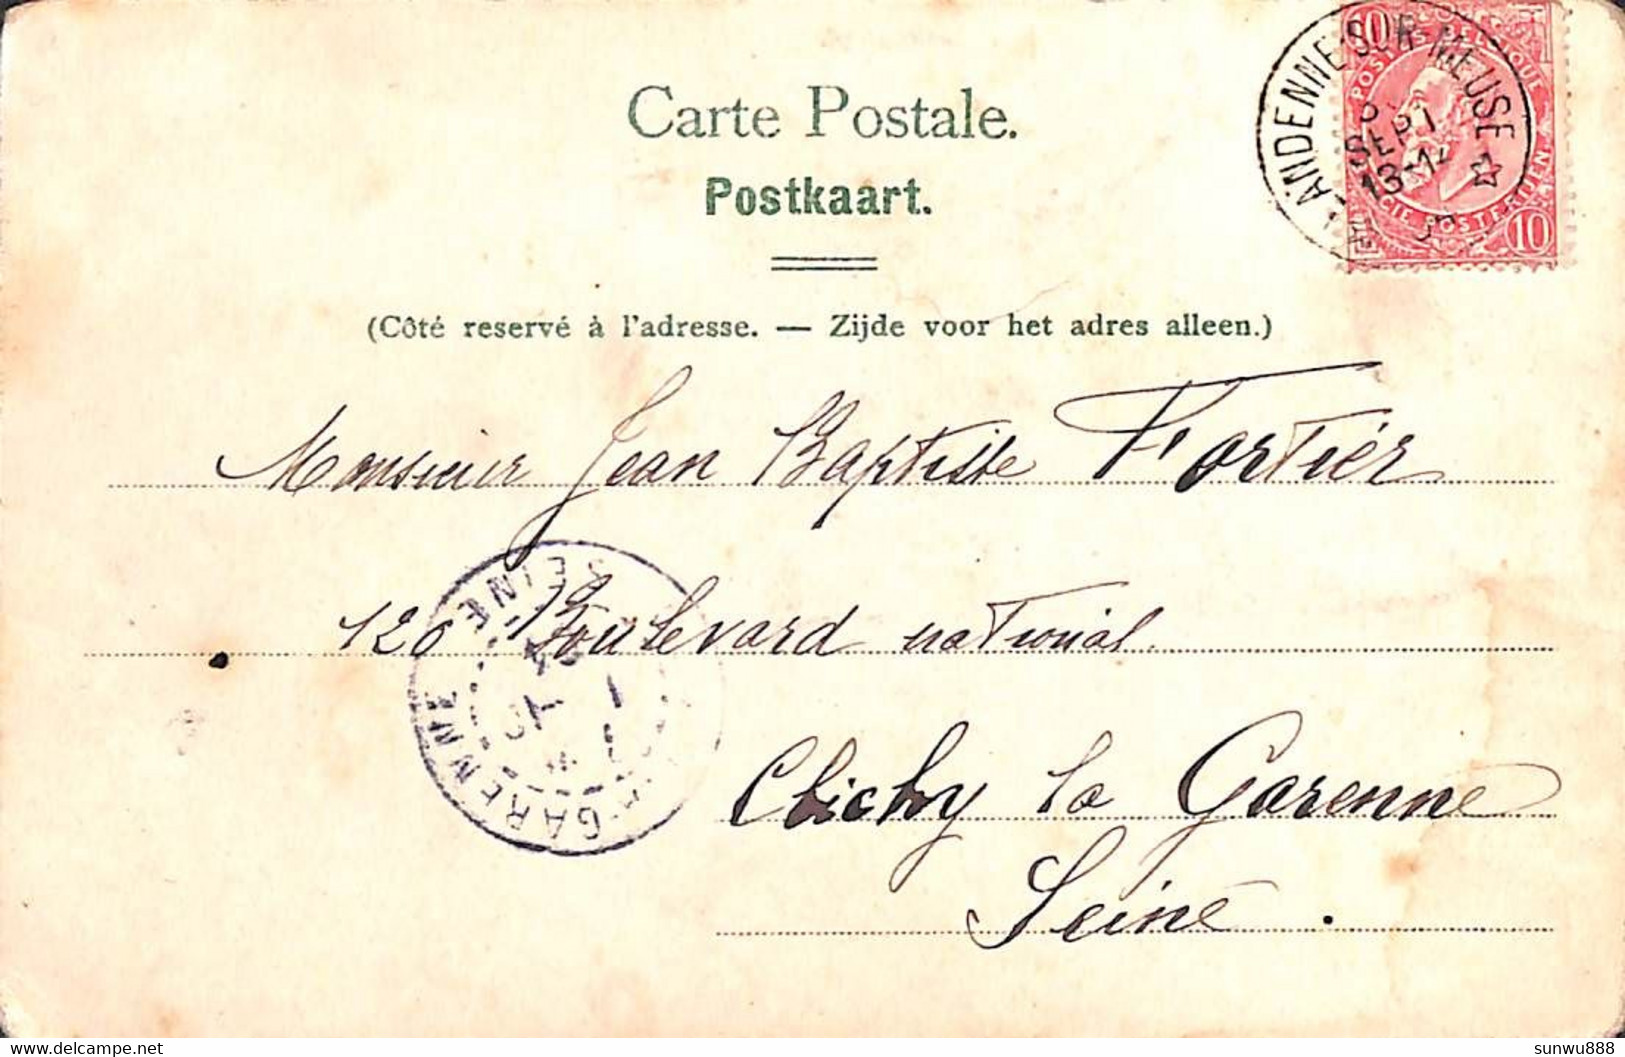 Carte Postale.
Postkaart.
(Côté reservé à l'adresse. — Zijde voor het adres alleen.)
ANDENNE-SUR-MEUSE
SEPT
POSTES BELGIQUE
POSTERIJEN
10
Monsieur Jean Baptiste Fortier
120 Boulevard national
Clichy la Garenne
Seine.
GARENNE
SEINE
sunwu888